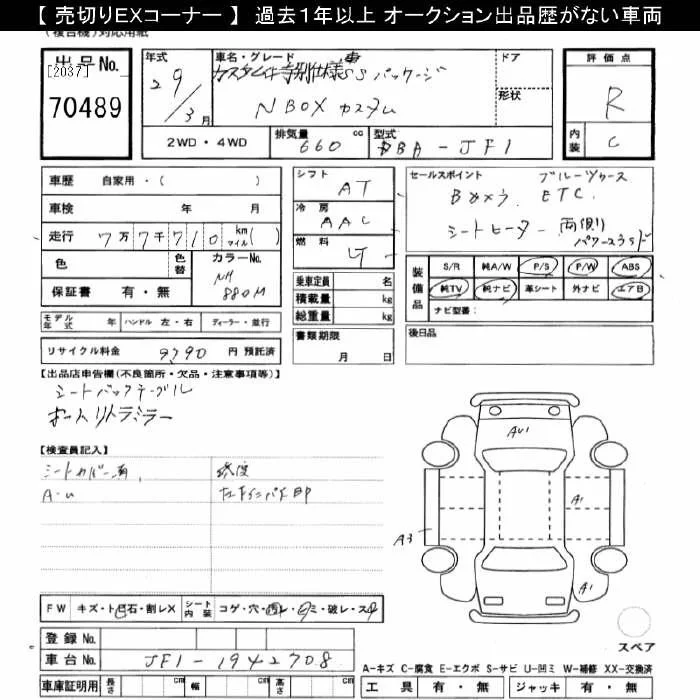 【 売切りEXコーナー 】 過去１年以上 オークション出品歴がない車両
(複合機) 対応用紙
出品No.
[2037]
70489
年式
29/3月
車名・グレード
カスタムG特別仕様車SSパッケージ
N BOX カスタム
ドア
形状
評価点
R
内装
C
2WD・4WD
排気量 660 cc
型式 DBA-JF1
車歴 自家用・( )
車検 年 月
走行 7万7千710 km マイル( )
色
色替
カラーNo. NH 880M
保証書 有・無
シフト AT
冷房 AAC
燃料
乗車定員 名
積載量 kg
総重量 kg
書類期限
月 日
セールスポイント ブルーツゥース
Bカメラ. ETC.
シートヒーター 両側
パワースライド
装備品
S/R 純A/W P/S P/W ABS
純TV 純ナビ 革シート 外ナビ エアB
ナビ型番:
後日品
モデル年式 年 ハンドル 左・右 ディーラー・並行
リサイクル料金 9790 円 預託済
【出品店申告欄(不良箇所・欠品・注意事項等)】
シートバックテーブル
オートリトラミラー
【検査員記入】
シートカバー有
A・U
AU1
A1
A3
A1
FW キズ・ト石・割レX
シート内装 コゲ・穴・ミ・破レ・ス
登録 No.
車台 No. JF1-1942708
車庫証明用 長さ cm 幅 cm 高さ cm
スペア
A-キズ C-腐食 E-エクボ S-サビ U-凹ミ W-補修 XX-交換済
工具 有・無 ジャッキ 有・無